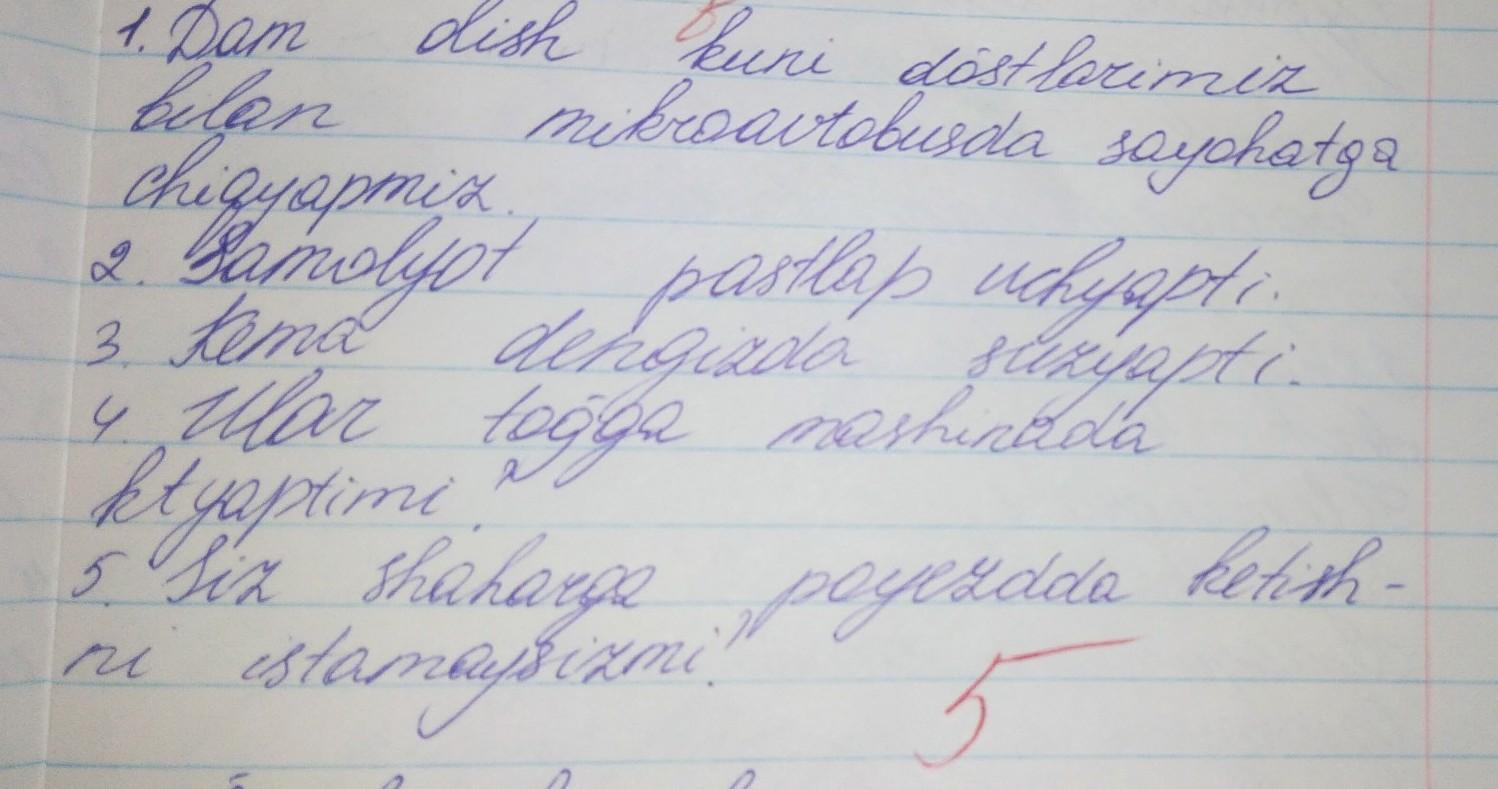 1. Dam olish kuni dóstlarimiz
bilan mikroavtobusda sayohatga
chiqyapmiz.
2. Samolyot pastlap uchyapti.
3. Kema dengizda suzyapti.
4. Ular toǵga mashinada
ktyaptimi?
5. Siz shaharga poyezdda ketish-
ni istamaysizmi?
5